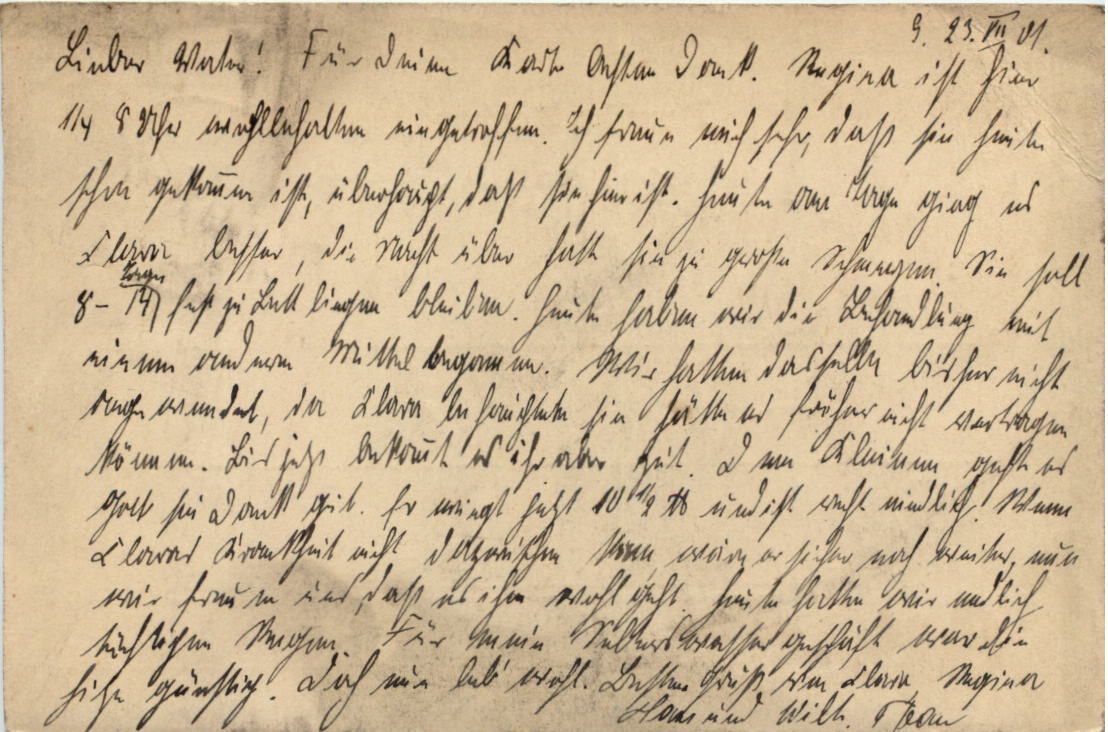 G. 23. VII 01.
Lieber Vater! Für Deine Karte besten Dank. Regina ist hier
1/4 8 Uhr wohlbehalten eingetroffen. Ich freue mich sehr, daß sie heute
schon gekom̅en ist, überhaupt, daß sie hier ist. Heute am Tage ging es
Clara besser, die Nacht über hatte sie zu große Schmerzen. Sie soll
8 – 14 Tage fest zu Bett liegen bleiben. Heute haben wir die Behandlung mit
einem anderen Mittel begonnen. Wir hatten dasselbe bisher nicht
angewendet, da Clara befürchtete sie hätte es früher nicht vertragen
können. Bis jetzt bekom̅t es ihr aber gut. Dem Kleinen geht es
Gott sei Dank gut. Er wiegt jetzt 10 1/2 ℔ und ist recht niedlich. Wenn
Claras Krankheit nicht dazwischen kam, wäre er sicher noch weiter, nun
wir freuen uns, daß es ihm wohl geht. Heute hatten wir endlich
tüchtigen Regen. Für mein Selterswassergeschäft war die
Hitze günstig. Doch nun leb' wohl. Besten Gruß von Clara, Regina
Hans und Wilh.